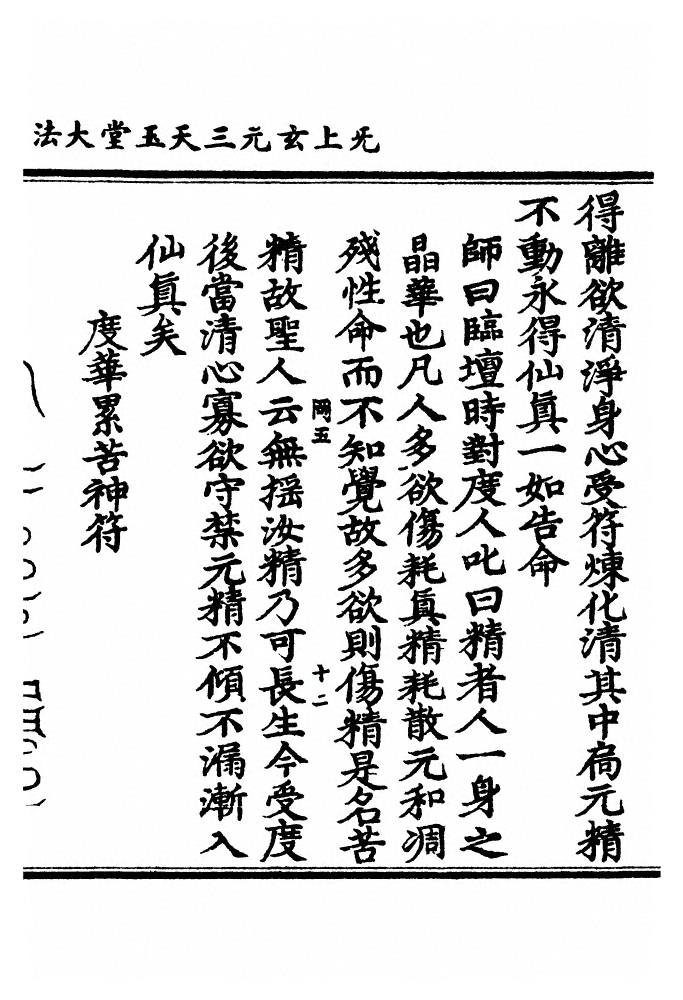 无上玄元三天玉堂大法
得離欲清淨身心受符煉化清其中扃元精
不動永得仙眞一如告命
師曰臨壇時對度人叱曰精者人一身之
晶華也凡人多欲傷耗眞精耗散元和凋
殘性命而不知覺故多欲則傷精是名苦
罔五
十二
精故聖人云無揺汝精乃可長生今受度
後當清心寡欲守禁元精不傾不漏漸入
仙眞矣
度華累苦神符